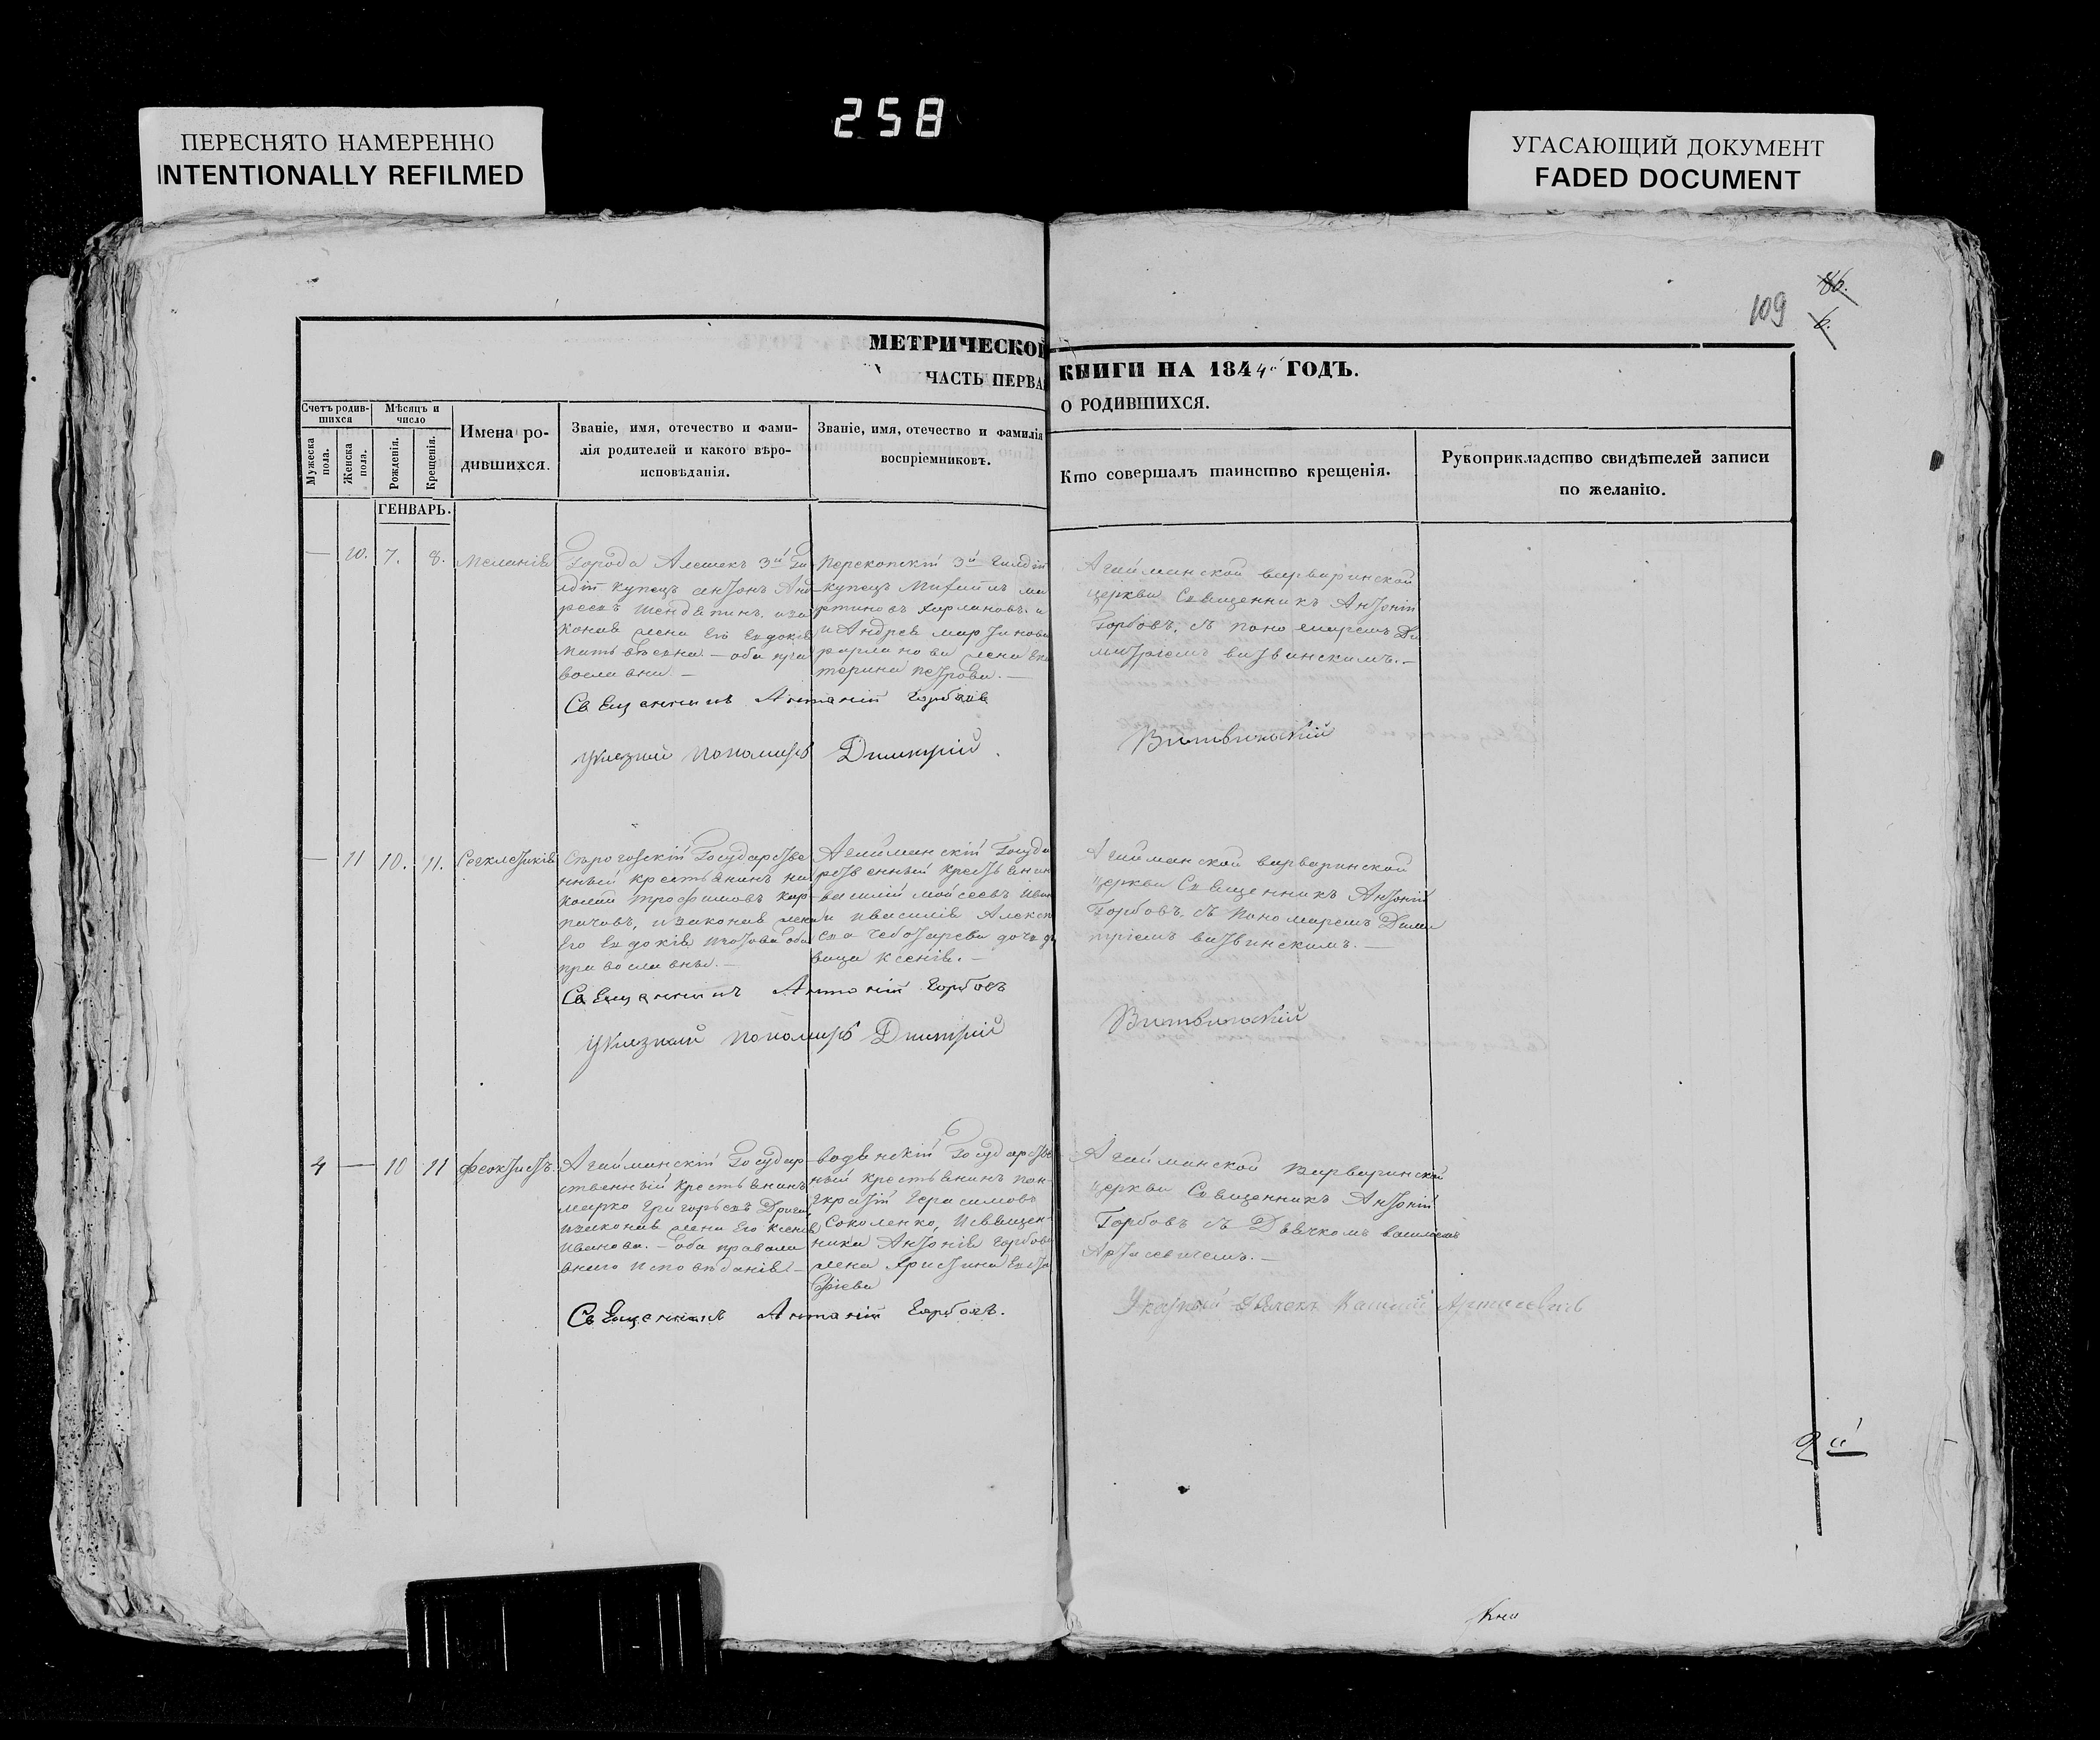 258
ПЕРЕСНЯТО НАМЕРЕННО
INTENTIONALLY REFILMED
УГАСАЮЩИЙ ДОКУМЕНТ
FADED DOCUMENT
109
86.
6.
МЕТРИЧЕСКОЙ КНИГИ НА 1844 ГОДЪ.
ЧАСТЬ ПЕРВАЯ О РОДИВШИХСЯ.
Счетъ родившихся
Мужеска пола.
Женска пола.
Мѣсяцъ и число
Рожденія.
Крещенія.
Имена родившихся.
Званіе, имя, отечество и фами-
лія родителей и какого вѣро-
исповѣданія.
Званіе, имя, отечество и фамилія
воспріемниковъ.
Кто совершалъ таинство крещенія.
Рукоприкладство свидѣтелей записи
по желанію.
ГЕНВАРЬ.
— 10. 7. 8. Меланія
Города Алешекъ 3й Ги
лдіи купецъ Антонъ Анд
реевъ изъ
конная жена его Евдокія
Матвѣевна — оба пра
вославны. —
Перекопскій 3й Гилдіи
купецъ
и Андрея Мартинова
жена Ека
терина Петрова. —
Агайманской варваринской
церкви Священникъ Антоній
Горбовъ, съ пономаремъ Ди
митріемъ витвинскимъ. —
Священникъ Антоній Горбовъ
Указный пономарь Димитрій Витвинскій
— 11 10. 11.
Сѣрогозскій Государстве
нный крестьянинъ Ни
колай Трофимовъ Кир
пичовъ, изаконная жена
Его Евдокія оба
православны. —
Агайманскій Госуда
рственный крестьянин
василій Мойсеевъ
и василія Алексе
ева Чеботарева дочь дѣ
вица Ксенія. —
Агайманской варваринской
церкви Священникъ Антоній
Горбовъ. съ пономаремъ Дими
тріемъ витвинскимъ. —
Священникъ Антоній Горбовъ
Указный пономарь Димитрій Витвинскій
4 — 10 11 Феоктистъ.
Агайманскій Государ
ственный крестьянинъ
Марко Григорьевъ
изаконная жена Его Ксенія
Иванова. — оба правосла
внаго исповѣданія. —
Государстве
ный крестьянинъ Пан
кратій Герасимовъ
Соколенко, и священ
ника Антонія Горбова
жена Христина Евста
фіева
Агайманской варваринской
церкви Священникъ Антоній
Горбовъ съ Дьячкомъ василіемъ
Артасевичемъ. —
Священникъ Антоній Горбовъ.
Указный дьячекъ Василій Артасевичъ
Кни